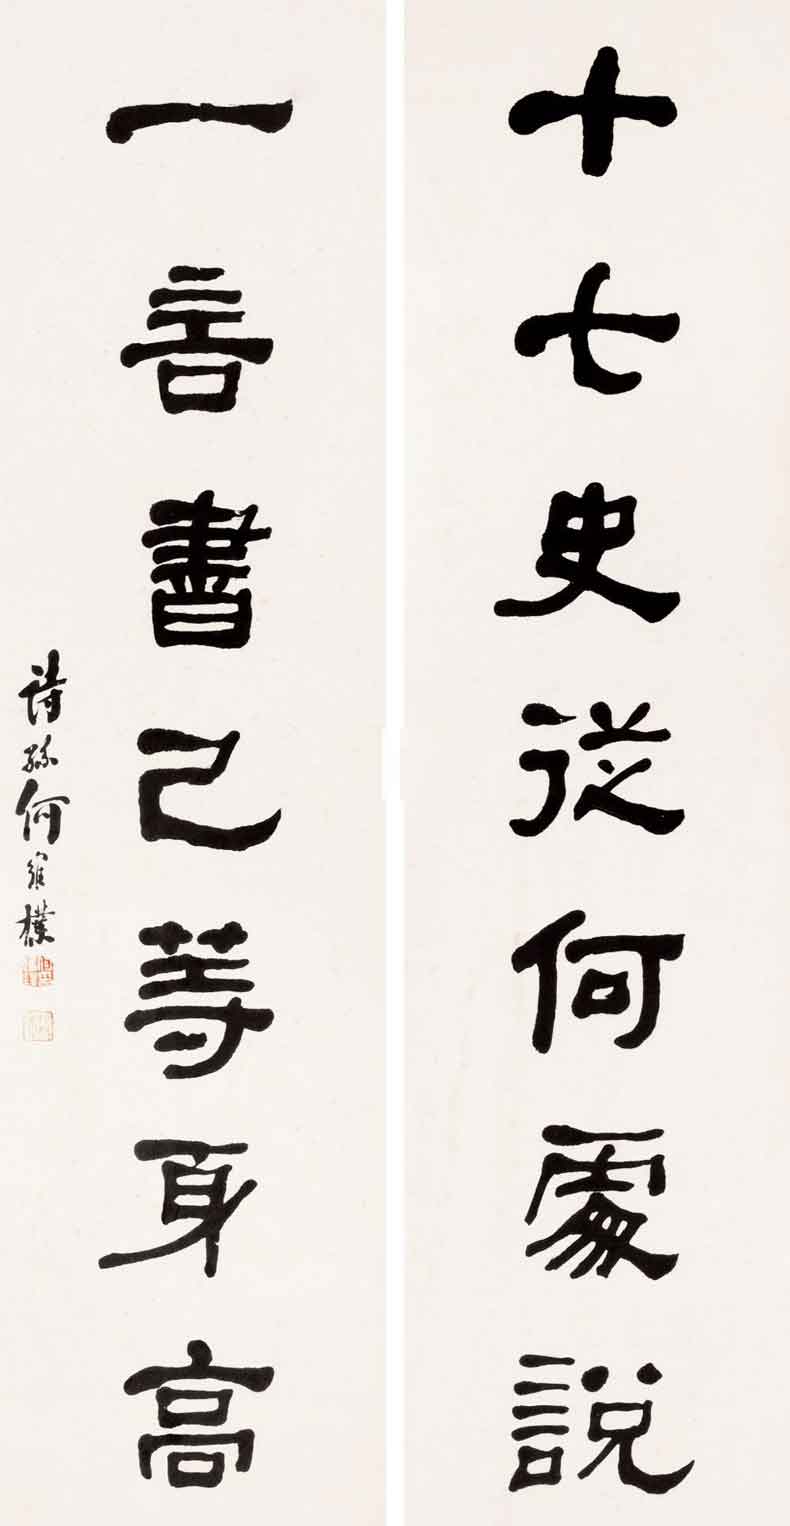 十七史從何處說
一言書已等身高
詩孫何維樸